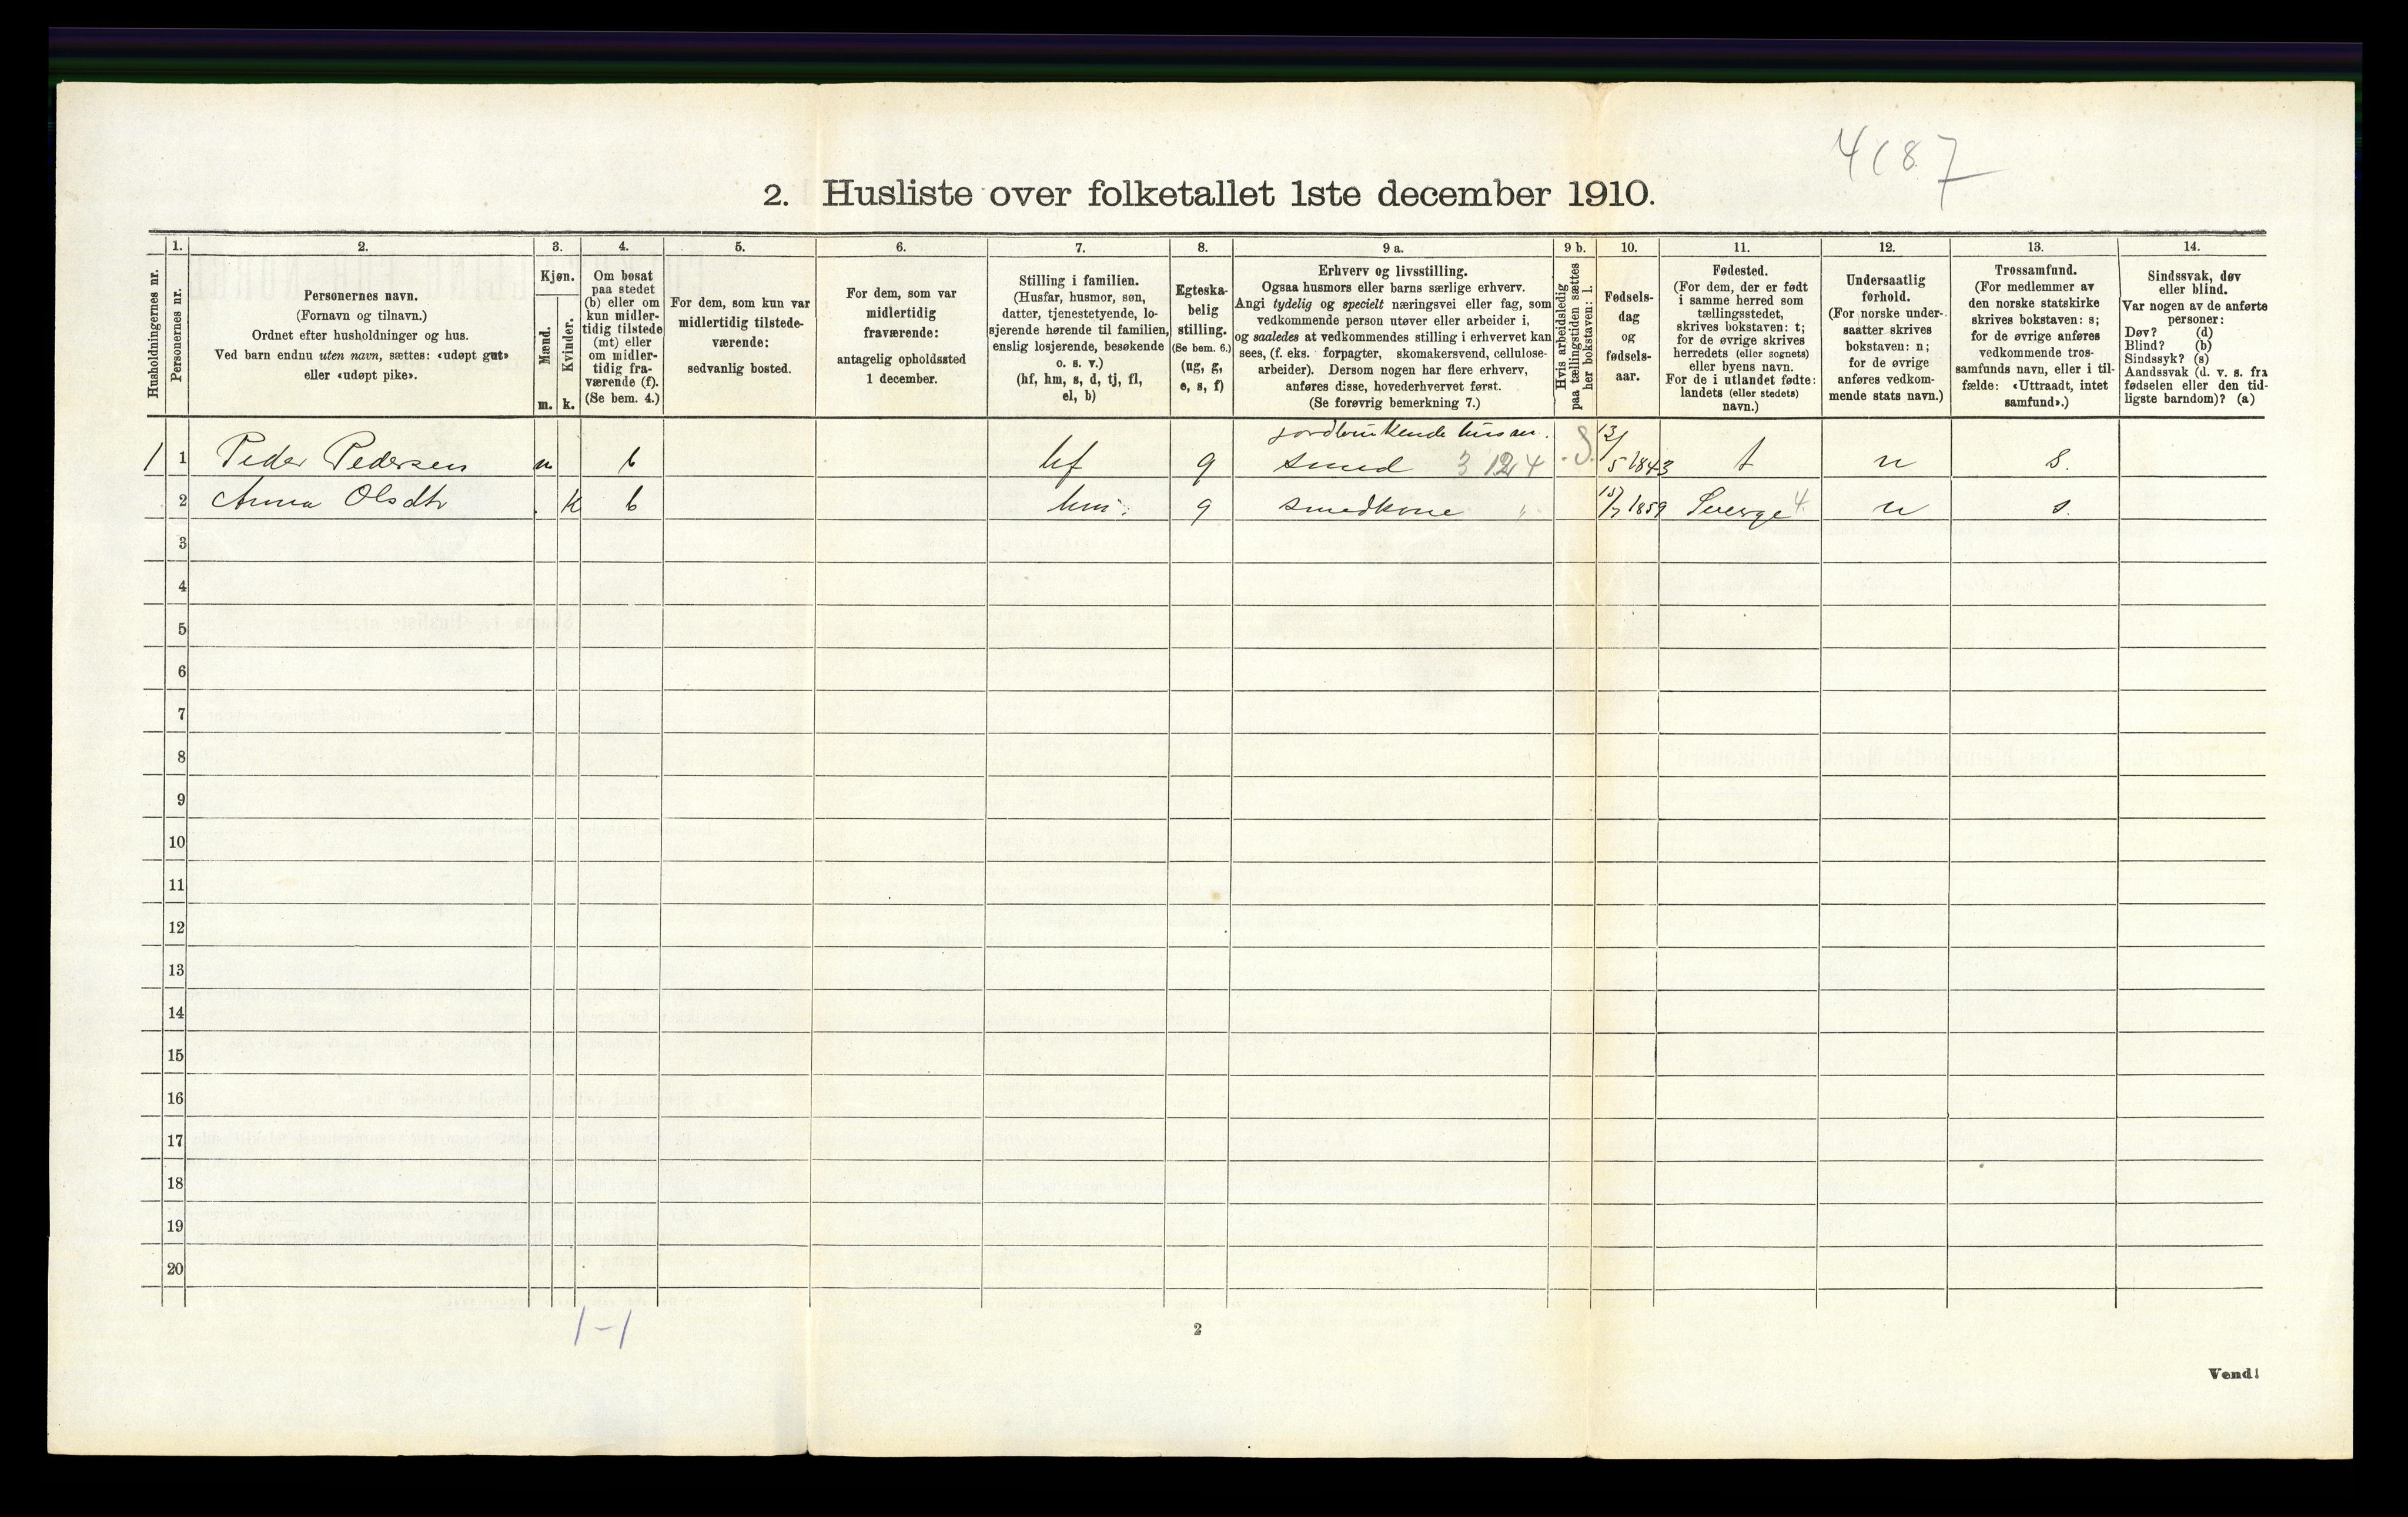 4187
2. Husliste over folketallet 1ste december 1910.
Husholdningernes nr.
1.
Personernes nr.
2.
Personernes navn.
(Fornavn og tilnavn.)
Ordnet efter husholdninger og hus.
Ved barn endnu uten navn, sættes: «udøpt gut»
eller «udøpt pike».
3.
Kjøn.
Mænd.
m.
Kvinder.
k.
4.
Om bosat
paa stedet
(b) eller om
kun midler-
tidig tilstede
(mt) eller
om midler-
tidig fra-
værende (f).
(Se bem. 4.)
5.
For dem, som kun var
midlertidig tilstede-
værende:
sedvanlig bosted.
6.
For dem, som var
midlertidig
fraværende:
antagelig opholdssted
1 december.
7.
Stilling i familien.
(Husfar, husmor, søn,
datter, tjenestetyende, lo-
sjerende hørende til familien,
enslig losjerende, besøkende
o. s. v.)
(hf, hm, s, d, tj, fl,
el, b)
8.
Egteska-
belig
stilling.
(Se bem. 6.)
(ug, g,
e, s, f)
9 a.
Erhverv og livsstilling.
Ogsaa husmors eller barns særlige erhverv.
Angi tydelig og specielt næringsvei eller fag, som
vedkommende person utøver eller arbeider i,
og saaledes at vedkommendes stilling i erhvervet kan
sees, (f. eks. forpagter, skomakersvend, cellulose-
arbeider). Dersom nogen har flere erhverv,
anføres disse, hovederhvervet først.
(Se forøvrig bemerkning 7.)
9 b.
Hvis arbeidsledig
paa tællingstiden sættes
her bokstaven: l.
10.
Fødsels-
dag
og
fødsels-
aar.
11.
Fødested.
(For dem, der er født
i samme herred som
tællingsstedet,
skrives bokstaven: t;
for de øvrige skrives
herredets (eller sognets)
eller byens navn.
For de i utlandet fødte:
landets (eller stedets)
navn.)
12.
Undersaatlig
forhold.
(For norske under-
saatter skrives
bokstaven: n;
for de øvrige
anføres vedkom-
mende stats navn.)
13.
Trossamfund.
(For medlemmer av
den norske statskirke
skrives bokstaven: s;
for de øvrige anføres
vedkommende tros-
samfunds navn, eller i til-
fælde: «Uttraadt, intet
samfund».)
14.
Sindssvak, døv
eller blind.
Var nogen av de anførte
personer:
Døv? (d)
Blind? (b)
Sindssyk? (s)
Aandssvak (d. v. s. fra
fødselen eller den tid-
ligste barndom)? (a)
jordbrukende husm.
1 1 Peder Pedersen m b hf g smed 3 124 S 12/5 1843 t n s.
2 Anna Olsdtr k b hm. g smedkone " 1859 Sverge 4 n s.
3
4
5
6
7
8
9
10
11
12
13
14
15
16
17
18
19
20
1-1
2
Vend!